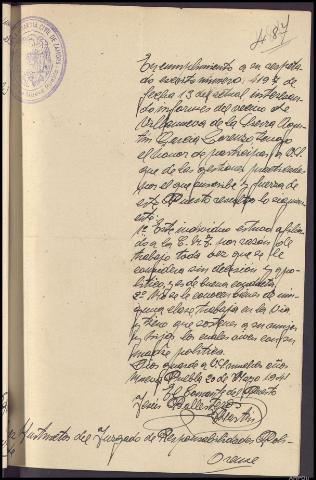 487
En cumplimiento a su respeta-
do escrito número 4197 de
fecha 13 del actual interesan-
do informes del vecino de
Villanueva de la Sierra Agus-
tin Garcia Lorenzo, tengo
el honor de participar a V.S.
que de las gestiones practicadas
por el que suscribe y fuerza de
este Puesto resulta lo siguien-
te:
1º Este individuo estuvo afilia-
do a la C.N.T. por razon de
trabajo toda vez que se le
considera sin decision y apo-
litico, y es de buena conducta.
2º No se le conocen bienes de nin-
guna clase, trabaja en la Via
y tiene que sostener a su mujer
y hijos los cuales viven con su
madre politica.
Dios guarde a V.S. muchos años
Puebla 20 de Mayo 1941
El Comante del Puesto
Jesús Ballesteros
Martin
Instructor del Juzgado de Responsabilidades Poli-
Orense